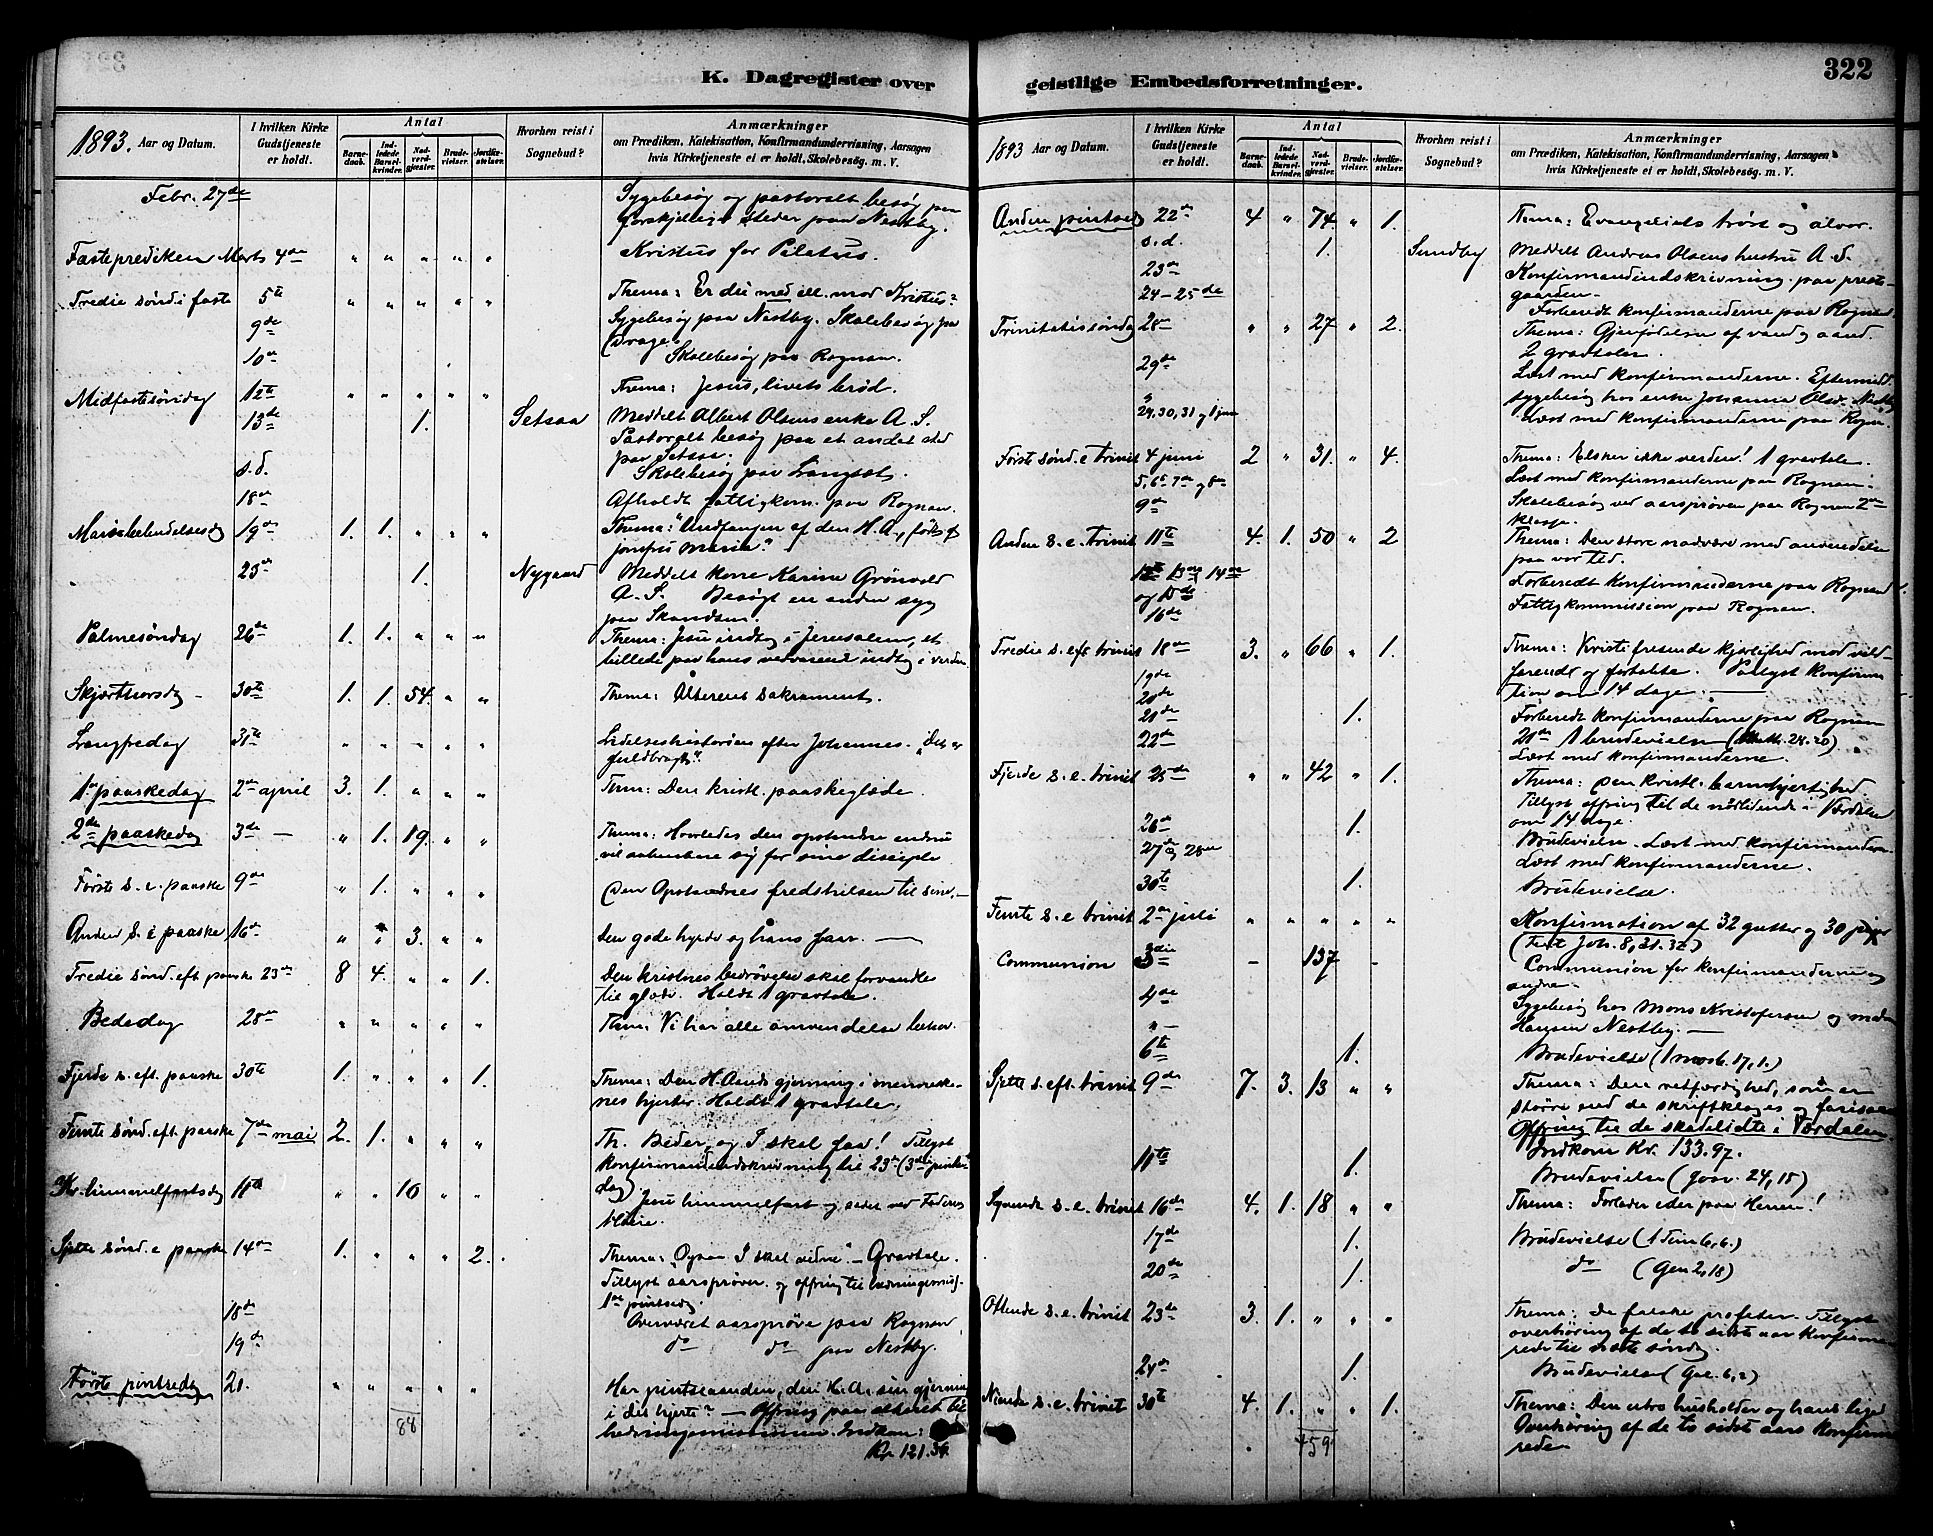 K. Dagregister over
1893. Aar og Datum.
I hvilken Kirke Gudstjeneste er holdt.
Antal
Barnedaab.
Indledede Barselkvinder.
Nadverdgjæster.
Brudevielser.
Jordfæstelser.
Hvorhen reist i Sognebud?
Anmærkninger
om Prædiken, Katekisation, Konfirmandundervisning, Aarsagen
hvis Kirketjeneste ei er holdt, Skolebesøg. m. V.
Febr. 27de Sygebesøg og pastoralt besøg paa
forskjellige steder paa Nestby.
Fasteprediken Marts 4de " " " " " Kristus for Pilatus.
Tredie sønd i faste 5te " " " " " Thema: Er du med ell. mod Kristus?
9de Sygebesøg paa Nestby. Skolebesøg paa
Drage.
10de Skolebesøg paa Rognan.
Midfastesøndag 12te " " " " " Thema: Jesus, livets brød.
13de 1. Setsaa Meddelt Albert Olsens enke A. S.
Pastoralt besøg paa et andet sted
paa Setsaa.
s.d. Skolebesøg paa
18de Afholdt fattigkom. paa Rognan.
19de 1. 1. " " " Thema: "Undfangen af den H. A., født af
jomfru Maria."
23de 1. Nygaard Meddelt Karine Grönvold
A. S. Besøgt en anden syg
paa
Palmesøndag 26de 1. 1. " " " Thema: Jesu indtog i Jerusalem, et
billede paa hans indtog i verden
Skjærthorsdag - 30te 1. 1. 54. " " Thema: Alterens sakrament.
Langfredag 31te " " " " " Lidelseshistorien efter Johannes. "Det er
fuldbragt".
1ste paaskedag 2den april 3. 1. " " " Tema: Den kristl. paaskeglæde.
2den paaskedag 3de — " 1. 19. " " Thema: Hvorledes den opstandne endnu
vil aabenbare sig for sine disciple
Første s. e. paaske 9de " 1. " " " Den Opstandnes fredshilsen til sine. —
Anden s. e paaske 16de " " 3. " " Den gode hyrde og hans faar. —
Tredie sønd. eft. paaske 23de 8 4. " " 1. Den kristnes bedrøvelse skal forvandles
til glæde. Holdt 1 gravtale.
Bededag 28de " " " " " Thema: Vi har alle omvendelse behov.
Fjerde s. eft. paaske 30te 1. " " " 1. Thema: Den H. Aands gjerning i menneske-
nes hjerter. Holdt 1 gravtale.
Femte sønd. eft. paaske 7de mai 2. 1. " " " Th. Beder, og I skal faa! Tillyst
konfirmandindskrivning til 23de (3die pintse-
dag)
Kr. himmelfartsdag 11te " " 10 " " Jesu himmelfart og sæde ved Faderens
høire.
Sjette sønd. e paaske 14de 1. " " " 2. Thema: "Ogsaa I skal vidne". — Gravtale.
Tillyst aarsprøver og ofring til hedningemiss.
1ste pintsedag.
18de Overværet aarsprøve paa Rognan
19de do do paa Nestby.
Første pintsedag 21. " " " " " Har pintseaanden, den H. A. sin gjerning
i dit hjerte? — Ofring paa alteret til
hedningemissionen. Indkom:
88 Kr. 121.36.
geistlige Embedsforretninger.
322
1893 Aar og Datum.
I hvilken Kirke Gudstjeneste er holdt.
Antal
Barnedaab.
Indledede Barselkvinder.
Nadverdgjæster.
Brudevielser.
Jordfæstelser.
Hvorhen reist i Sognebud?
Anmærkninger
om Prædiken, Katekisation, Konfirmandundervisning, Aarsagen
hvis Kirketjeneste ei er holdt, Skolebesøg. m. V.
Anden pintsedag 22de 4 " 74. " 1. Thema: Evangeliets trøst og alvor.
s.d. 1. Sundby Meddelt Andreas Olsens hustru A. S.
23de Konfirmandindskrivning paa preste-
gaarden.
24-25de Forberedt konfirmanderne paa Rognan.
Trinitatissøndag 28de " " 27 " 2. Thema: Gjenfødelsen af vand og aand.
2 gravtaler.
29de Læst med konfirmanderne. Eftermidd.
" sygebesøg hos enke Johanna Olsd. Nestby
29,30,31 og 1 juni Læst med konfirmanderne paa Rognan.
Første sønd. e trinit 4 juni 2 " 31. " 4. Thema: Elsker ikke verden! 1 gravtale.
5, 6te 7de og 8de Læst med konfirmanderne paa Rognan.
9de Skolebesøg ved aarsprøven paa Rognan 2den
klasse.
Anden s. e. trinit 11te 4. 1. 50 " 2 Thema: Den store nadvere med anvendelse
paa vor tid.
14de og 15de Forberedt konfirmanderne paa Rognan
16de Fattigkommission paa Rognan.
Tredie s. eft trinit 18de 3. " 66 " 1. Thema: Kristi frelsende kjærlighed mod vild-
farende og fortabte. Tillyst konfirma-
tion om 14 dage. —
19de
20de Forberedt konfirmanderne paa Rognan
21de 1. 21de 1 brudevielse (Matth. 28.20)
22de Læst med konfirmanderne.
Fjerde s. e. trinit 25de " " 42 " 1. Thema: Den kristl. barmhjertighed.
Tillyst ofring til de nødlidende i Værdalen
om 14 dage.
26de 1. Brudevielse. Læst med konfirmanderne
27de og 28de Læst med konfirmanderne.
30te 1. Brudevielse.
Femte s. e trinit 2den juli " " " " " Konfirmation af 32 gutter og 30 piger
(Text Joh. 8,31.32)
Communion 3die - 137 - Communion for konfirmanderne og
andre.
4de Sygebesøg hos Mons Kristofersen og
" — Hansen Nestby. —
6te 1. Brudevielse (1 moseb. 17,1.)
Sjette s. eft. trinit 9de 7. 3. 13 " " Thema: Den retfærdighed, som er
større end de skriftkloges og farisæer
Ofring til de skadelidte i Værdalen
Indkom Kr. 133.97.
11te 1. Brudevielse (Josv. 24,15)
Syvende s. e. trinit 16de 4. 1. 18 " " Thema: Forlader eder paa Herren!
17de 1. Brudevielse (1 Tim 6,6.)
20de 1. do (Gen 2,18)
Ottende s. e. trinit 23de 3. 1. " " " Thema: De falske profeter. Tillyst
overhøring af de to sidste aar konfirme-
rede til næste søndag.
24de 1. Brudevielse (Gal. 6,2)
Niende s. e. trinit 30te 4. 1. " " 1. Thema: Den utro husholder og hans
Overhøring af de to sidste aars konfirme-
rede
459